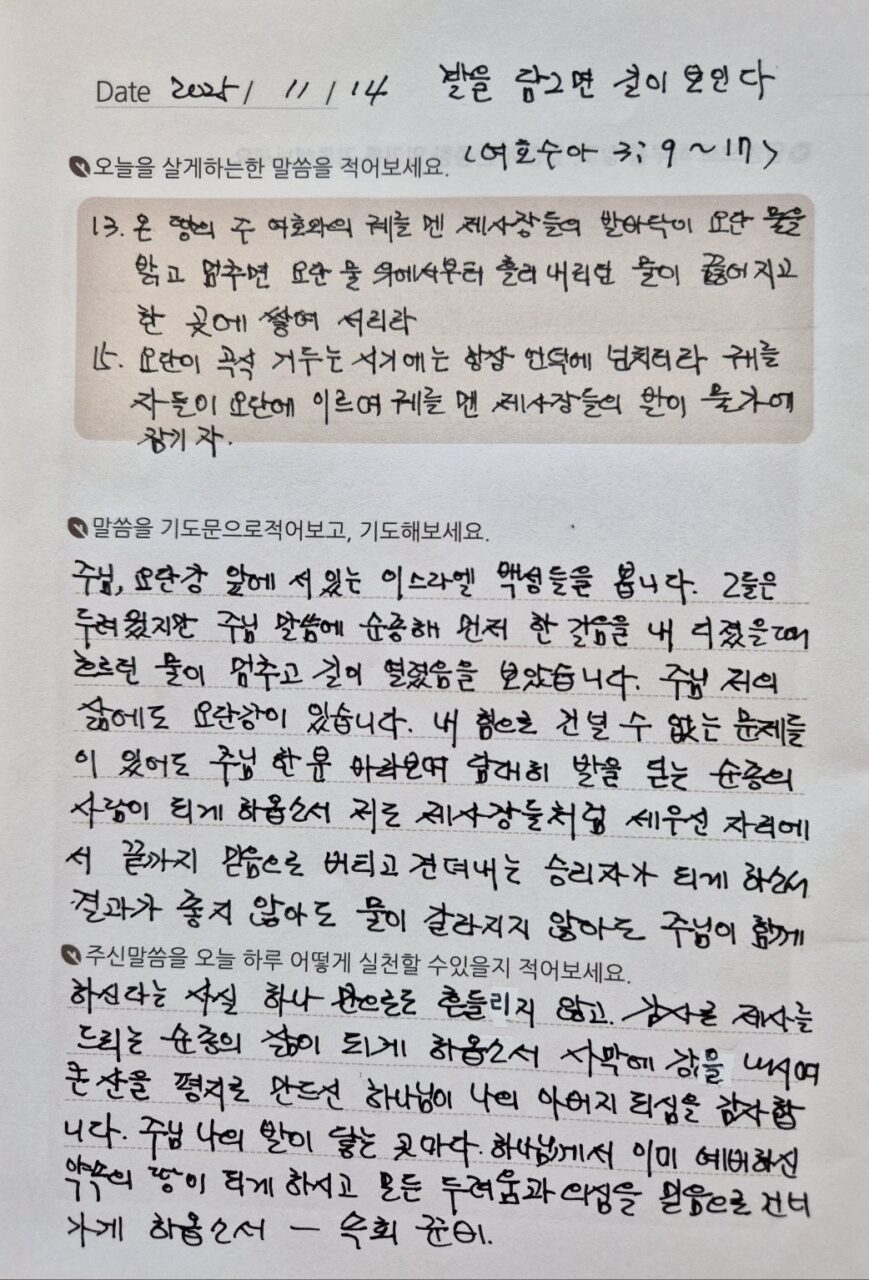 Date 2025 / 11 / 14 발을 담그면 길이 보인다
오늘을 살게하는한 말씀을 적어보세요. <여호수아 3; 9 ~ 17>
13. 온 땅의 주 여호와의 궤를 멘 제사장들의 발바닥이 요단 물을
밟고 멈추면 요단 물 위에서부터 흘러 내리던 물이 끊어지고
한 곳에 쌓여 서리라
15. 요단이 곡식 거두는 시기에는 항상 언덕에 넘치더라 궤를
자들이 요단에 이르며 궤를 멘 제사장들의 발이 물가에
잠기자.
말씀을 기도문으로적어보고, 기도해보세요.
주님, 요단강 앞에 서 있는 이스라엘 백성들을 봅니다. 그들은
두려웠지만 주님 말씀에 순종해 먼저 한 걸음을 내 디졌을때
흐르던 물이 멈추고 길이 열렸음을 보았습니다. 주님 저의
삶에도 요단강이 있습니다. 내 힘으로 건널 수 없는 문제들
이 있어도 주님 한 분 바라보며 담대히 발을 딛는 순종의
사람이 되게 하옵소서 저도 제사장들처럼 세우신 자리에
서 끝까지 믿음으로 버티고 견뎌내는 승리자가 되게 하소서
결과가 좋지 않아도 물이 갈라지지 않아도 주님이 함께
주신말씀을 오늘 하루 어떻게 실천할 수있을지 적어보세요.
하신다는 사실 하나 만으로도 흔들리지 않고. 감사로 제사를
드리는 순종의 삶이 되게 하옵소서 사막에 강을 내시며
큰 산을 평지로 만드신 하나님이 나의 아버지 되심을 감사합
니다. 주님 나의 발이 닿는 곳마다. 하나님께서 이미 예비하신
약속의 땅이 되게 하시고 모든 두려움과 의심을 믿음으로 건너
가게 하옵소서 – 속회 준비.